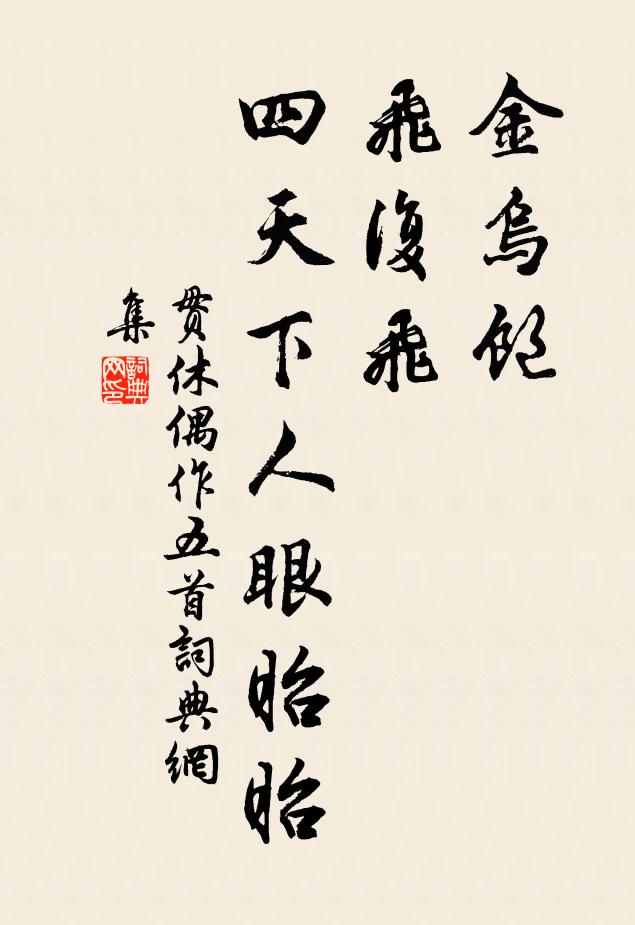 金烏
飛復飛
四天下人眼昭昭
貫休偶作五首詞典網
集
詞典網印